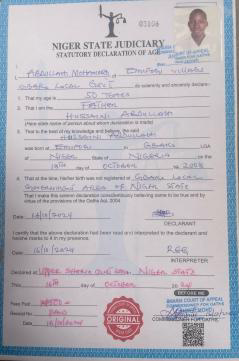 03106
NIGER STATE JUDICIARY
STATUTORY DECLARATION OF AGE
I, ABDULLAHI MOHAMMED of VILLAGE
GBAKO LOCAL GOVT do solemnly and sincerely declare:-
1. That my age is 50 YEARS
2. That I am the FATHER
HUSSAINI ABDULLAHI
(Here state name of person about whom declaration is made)
3. That to the best of my knowledge and belief, the said
HUSSAINI ABDULLAHI
was born at in GBAKO LGA
of NIGER State of NIGERIA on the
day of OCTOBER
4. That at the time, his/her birth was registered at GBAKO LOCAL
GOVERNMENT AREA OF NIGER STATE
5. That I make this solemn declaration conscientiously believing same to be true and by
virtue of the provisions of the Oaths Act, 2004.
Date 16/10/2024
DECLARANT
I certify that the above declaration had been read and interpreted to the declarant and
he/she marks to it in my presence.
Date 16/10/2024
INTERPRETER
Declared at UPPER SHARIA COURT NIGER STATE
This 16th day of OCTOBER
BEFORE ME
Fees Paid
Receipt No
Date 16/10/2024
ORIGINAL
SHARIA COURT OF APPEAL
COMMISSIONER FOR OATHS